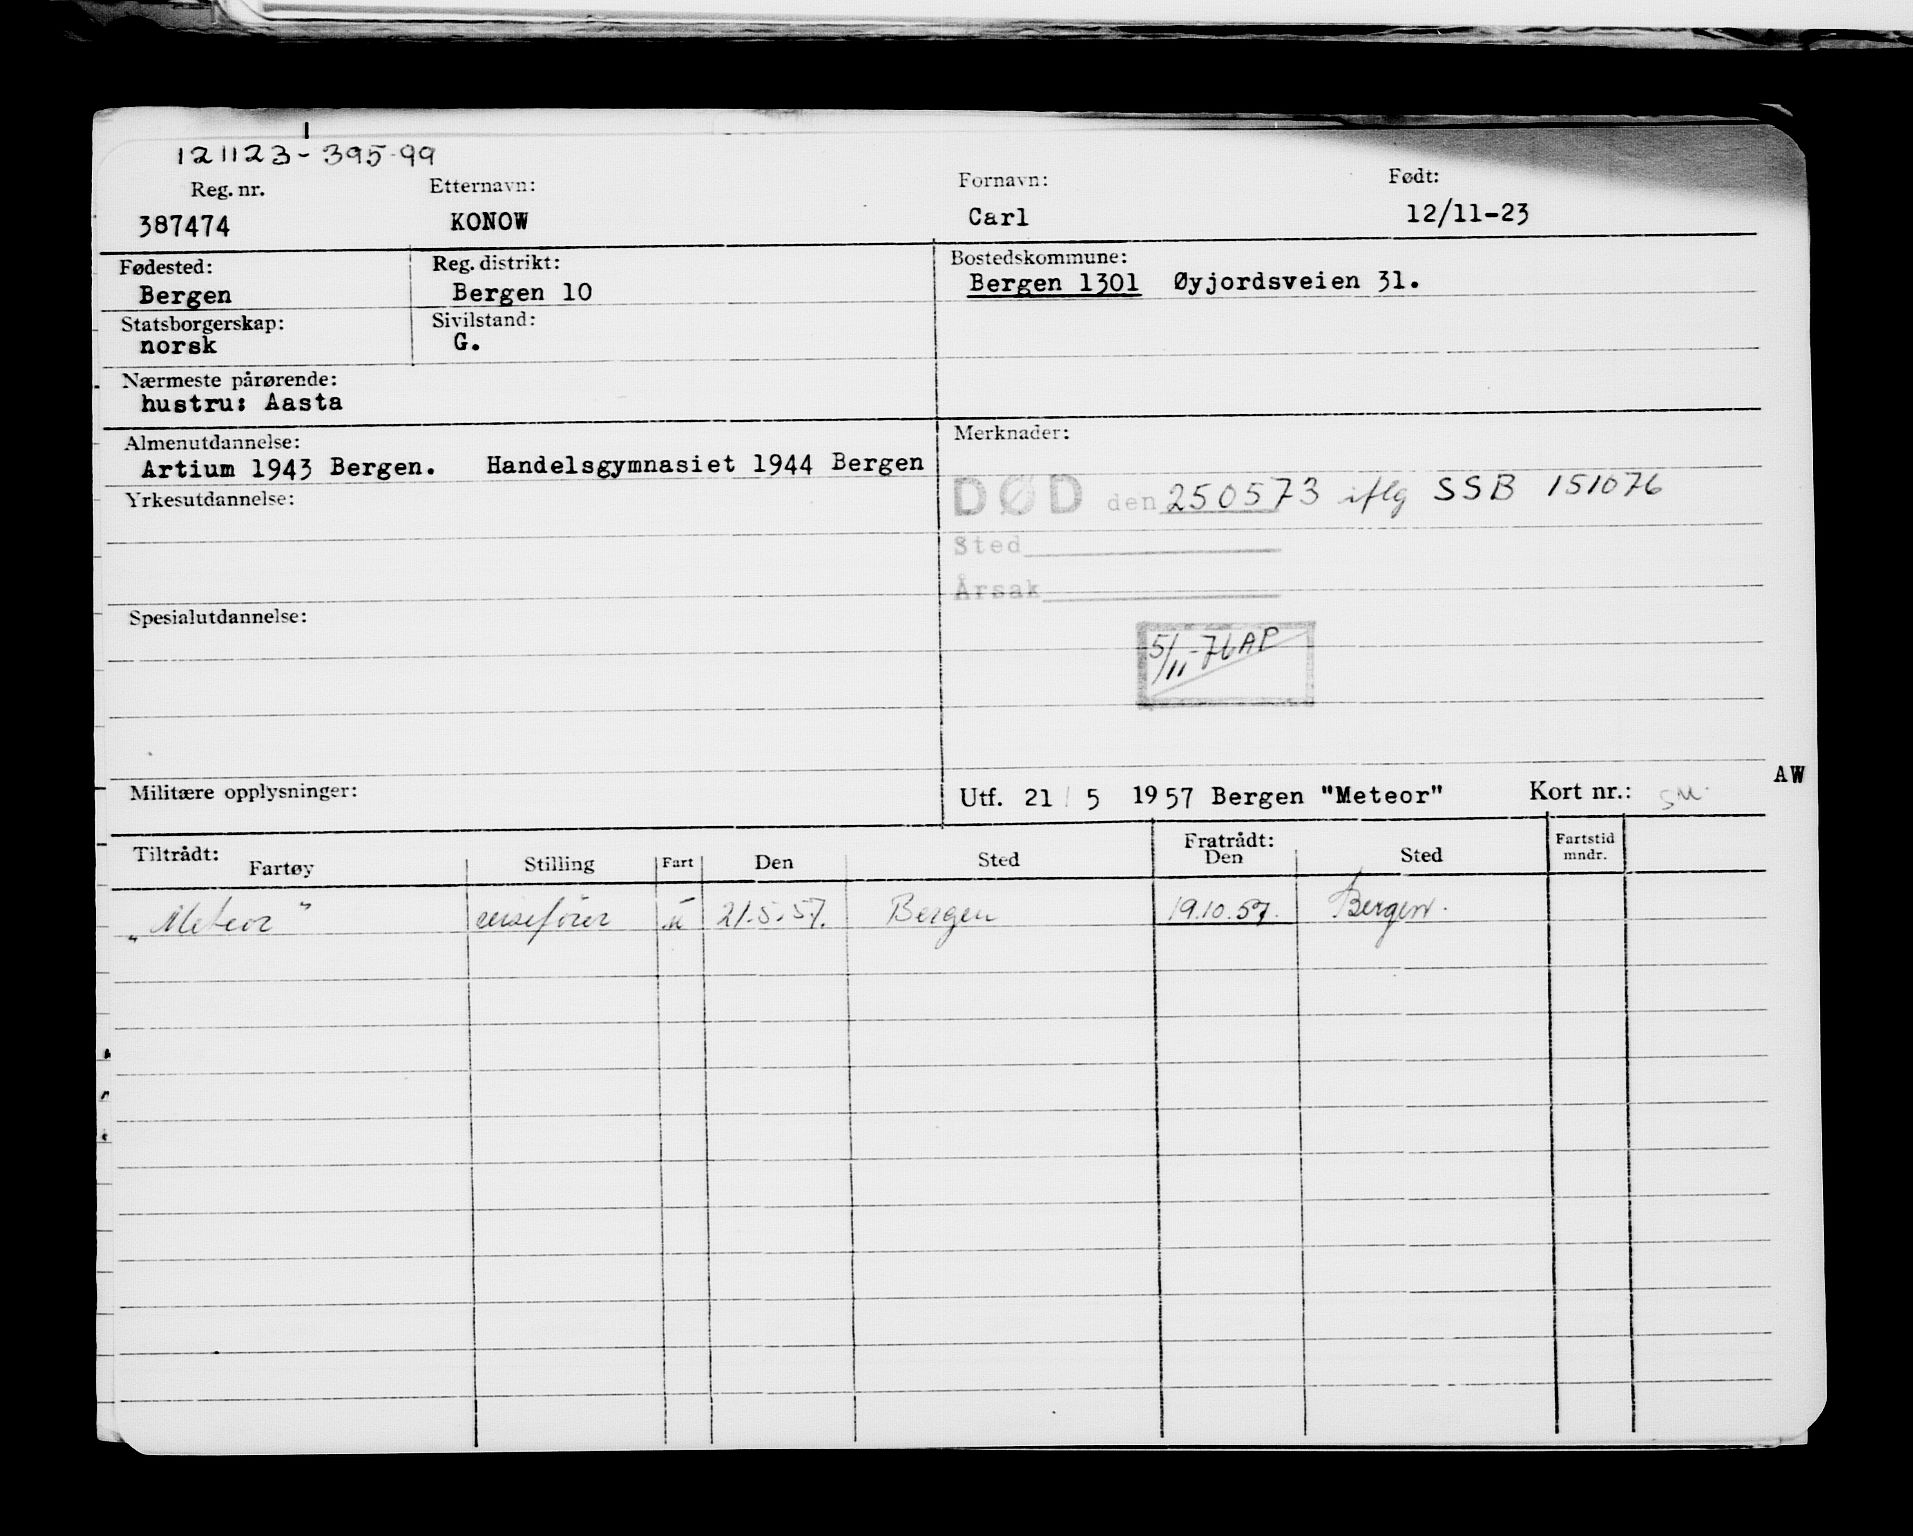 121123-395-99
Reg. nr. Etternavn: Fornavn: Født:
387474 KONOW Carl 12/11-23
Fødested: Reg. distrikt: Bostedskommune:
Bergen Bergen 10 Bergen 1301 Øyjordsveien 31.
Statsborgerskap: Sivilstand:
norsk G.
Nærmeste pårørende:
hustru: Aasta
Almenutdannelse: Merknader:
Artium 1943 Bergen. Handelsgymnasiet 1944 Bergen
Yrkesutdannelse:
DØD den 250573 iflg SSB 151076
Sted
Årsak
Spesialutdannelse:
5/11-76 AP
AW
Militære opplysninger: Utf. 21/5 1957 Bergen "Meteor" Kort nr.:
Tiltrådt: Fratrådt: Fartstid
Fartøy Stilling Fart Den Sted Den Sted mndr.
„Meteor" reisefører u 21.5.57. Bergen 19.10.57. Bergen.